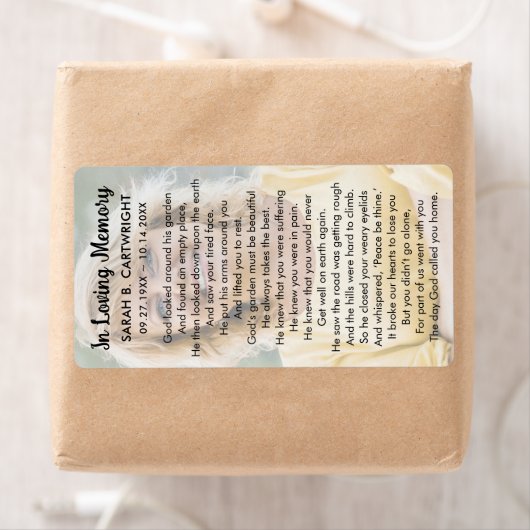 In Loving Memory
SARAH B. CARTWRIGHT
09.27.19XX ~ 10.14.20XX
God looked around his garden
And found an empty place,
He then looked down upon the earth
And saw your tired face.
He put his arms around you
And lifted you to rest.
God's garden must be beautiful
He always takes the best.
He knew that you were suffering
He knew you were in pain.
He knew that you would never
Get well on earth again.
He saw the road was getting rough
And the hills were hard to climb.
So he closed your weary eyelids
And whispered, 'Peace be thine.'
It broke our hearts to lose you
But you didn't go alone,
For part of us went with you
The day God called you home.